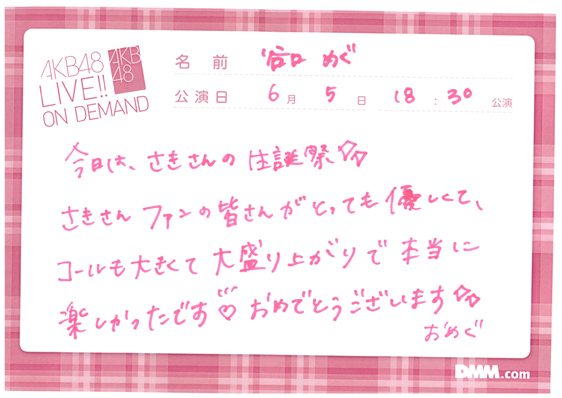 AKB48
LIVE!!
ON DEMAND
AKB
48
名前 谷口 めぐ
公演日 6月 5日 18:30 公演
今日は、さきさんの生誕祭☆☆
さきさんファンの皆さんがとっても優しくて、
コールも大きくて大盛り上がりで本当に
楽しかったです♡おめでとうございます☆☆
おめぐ
DMM.com